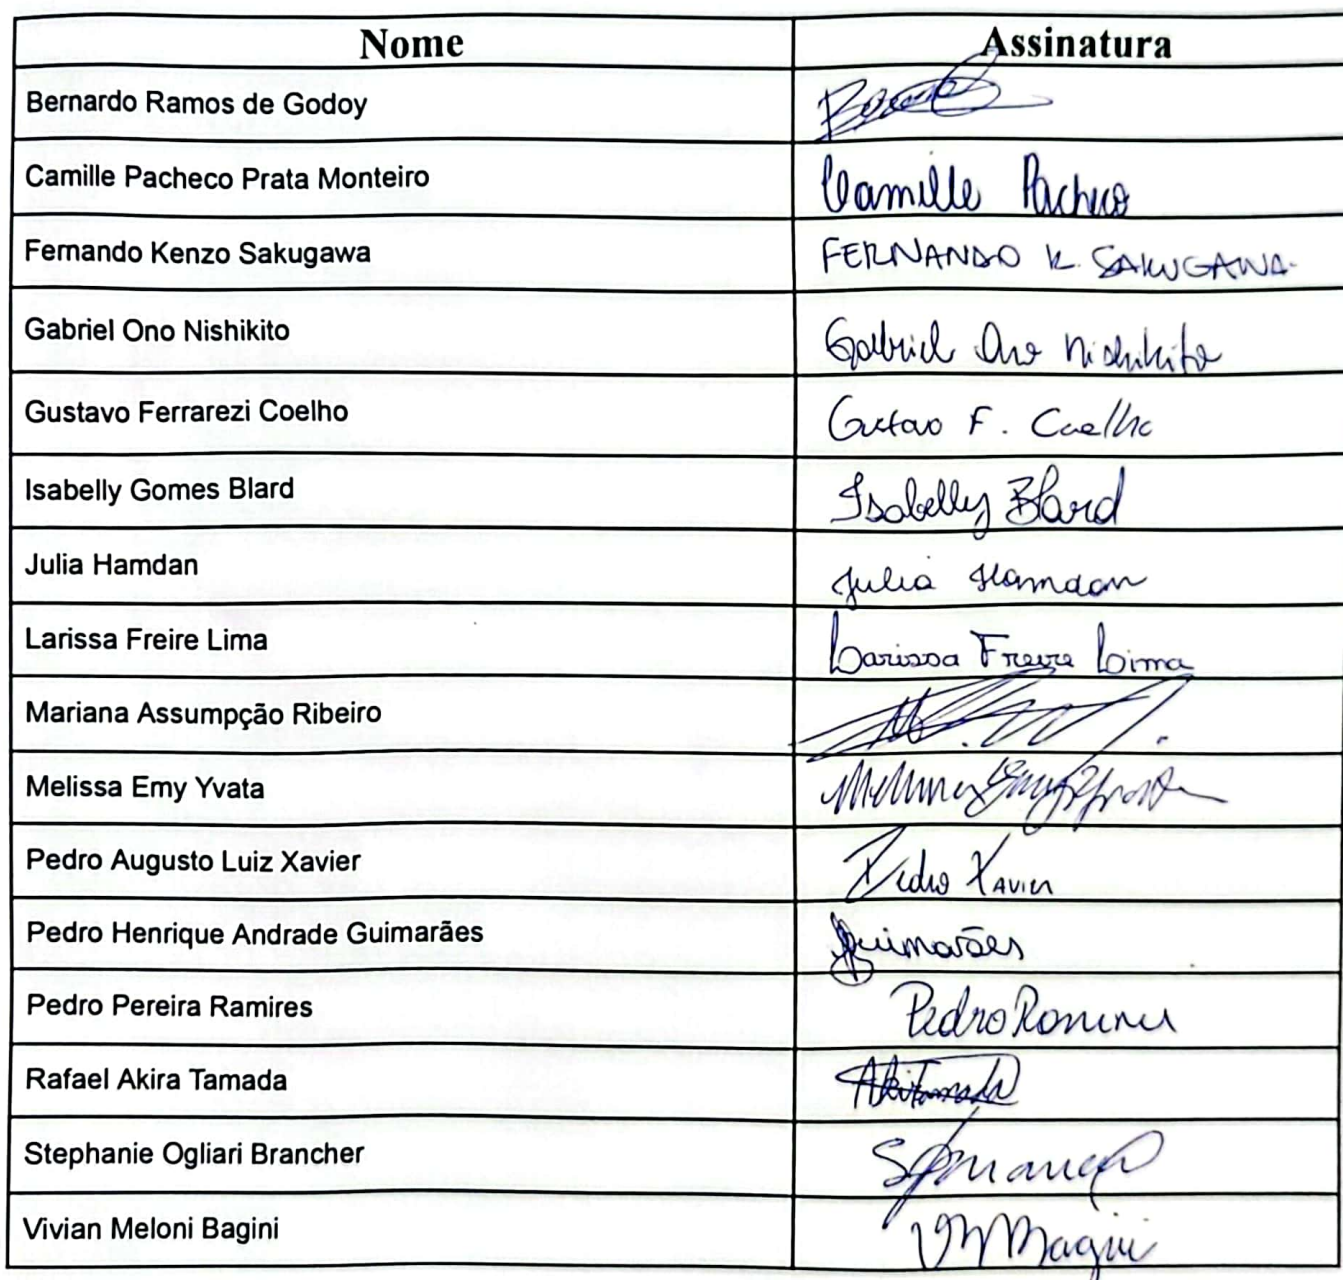 Nome Assinatura
Bernardo Ramos de Godoy
Camille Pacheco Prata Monteiro Camille Pacheco
Fernando Kenzo Sakugawa FERNANDO K. SAKUGAWA
Gabriel Ono Nishikito Gabriel Ono Nishikito
Gustavo Ferrarezi Coelho Gustavo F. Coelho
Isabelly Gomes Blard Isabelly Blard
Julia Hamdan Julia Hamdan
Larissa Freire Lima Larissa Freire Lima
Mariana Assumpção Ribeiro
Melissa Emy Yvata
Pedro Augusto Luiz Xavier Pedro Xavier
Pedro Henrique Andrade Guimarães Guimarães
Pedro Pereira Ramires Pedro Ramires
Rafael Akira Tamada
Stephanie Ogliari Brancher
Vivian Meloni Bagini